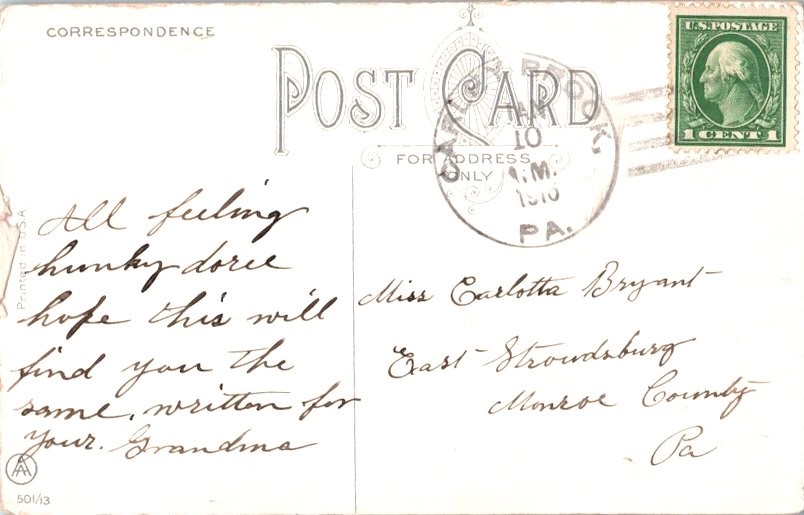 CORRESPONDENCE
POST CARD
FOR ADDRESS
ONLY
U.S. POSTAGE
1 CENT 1
10
.M.
PA.
Printed in U.S.A
All feeling
hunky doree
hope this will
find you the
same, written for
your. Grandma
Miss Carlotta Bryant
East Stroudsburg
Monroe County
Pa
501/13